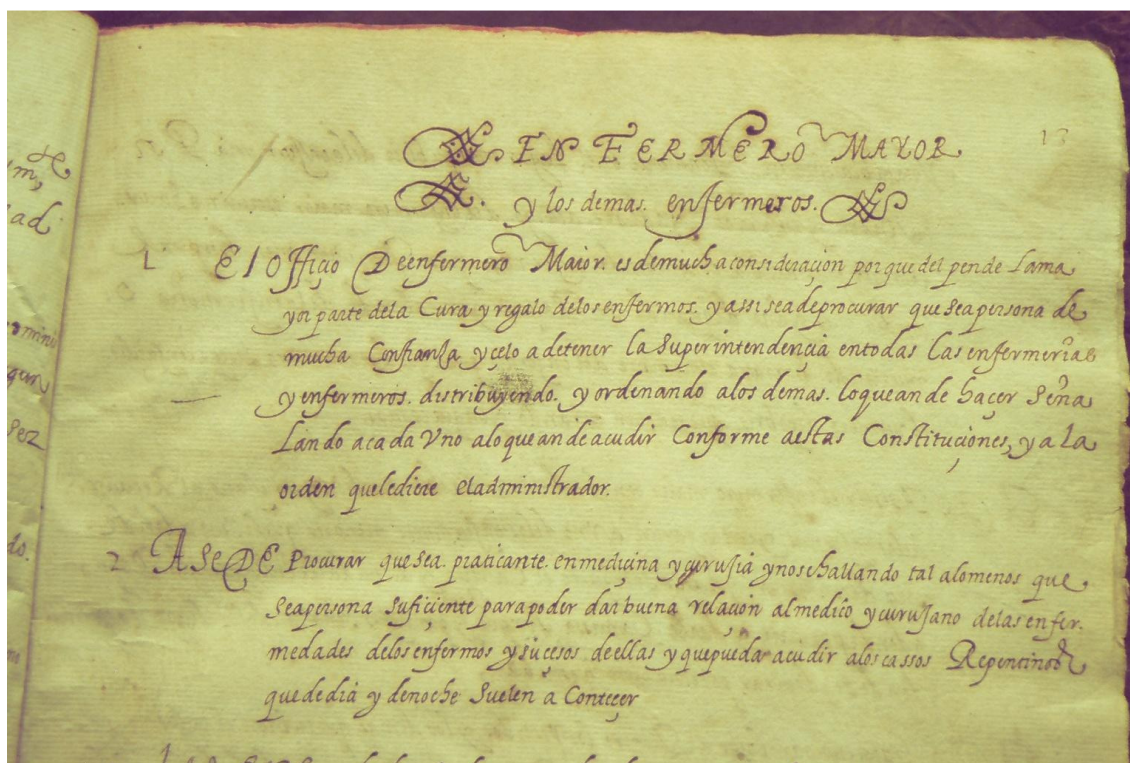 ENFERMERO MAYOR 13
y los demas. enfermeros.
1 El Officio De enfermero Maior. es de mucha consideraçion por que del pende La ma
yor parte de la Cura y regalo de los enfermos. y assi sea de procurar que sea persona de
mucha Confianza y çelo a de tener la Superintendençia en todas Las enfermerias
y enfermeros. distribuyendo. y ordenando a los demas. lo que an de haçer Seña
Lando a cada Uno a lo que an de acudir Conforme a estas Constituçiones, y a La
orden que le diere el administrador.
2 A Se DE Procurar que sea. praticante. en mediçina y çurujia y no se hallando tal a lo menos que
Sea persona Sufiçiente para poder dar buena relaçion al medico y curujano de las enfer.
medades de los enfermos y suçesos de ellas y que pueda acudir a los cassos Repentinos
que de dia y de noche Suelen a Conteçer
m,
ad.
mini
gun
sez
do.